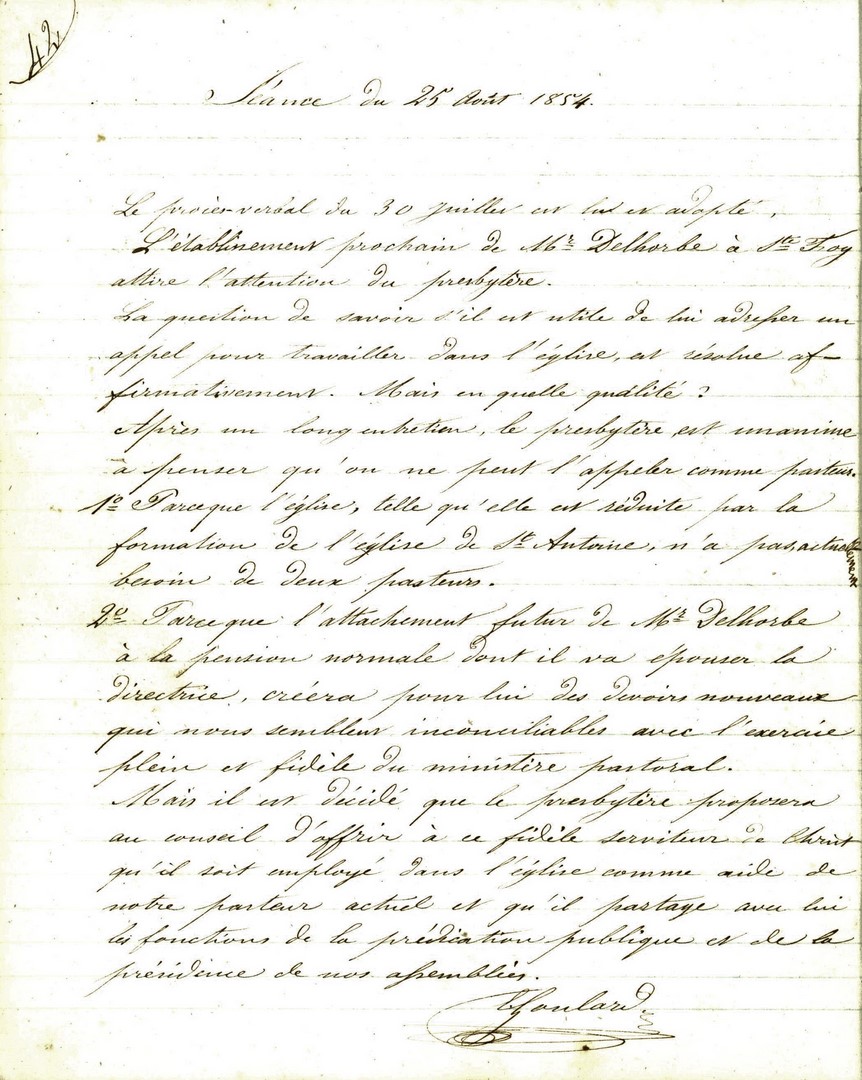 42
Séance du 25 Août 1854.
Le procès-verbal du 30 Juillet est lu et adopté.
L'établissement prochain de Mr Delhorbe à Ste Foy
attire l'attention du presbytère.
La question de savoir s'il est utile de lui adresser un
appel pour travailler dans l'église, est résolue af-
firmativement. Mais en quelle qualité ?
Après un long entretien, le presbytère est unanime
à penser qu'on ne peut l'appeler comme pasteur.
1o Parceque l'église, telle qu'elle est réduite par la
formation de l'église de St Antoine, n'a pas, actuellement
besoin de deux pasteurs.
2o Parceque l'attachement futur de Mr Delhorbe
à la pension normale dont il va épouser la
directrice, créera pour lui des devoirs nouveaux
qui nous semblent inconciliables avec l'exercice
plein et fidèle du ministère pastoral.
Mais il est décidé que le presbytère proposera
au conseil d'offrir à ce fidèle serviteur de Christ
qu'il soit employé dans l'église comme aide de
notre pasteur actuel et qu'il partage avec lui
les fonctions de la prédication publique et de la
présidence de nos assemblées.